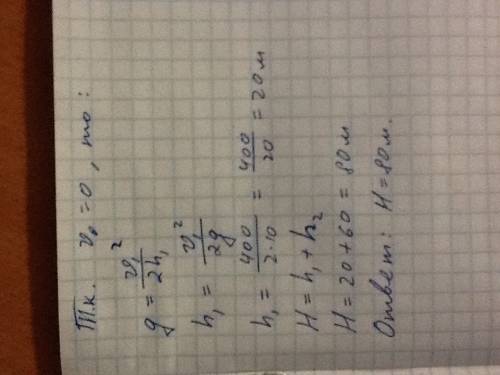 Т.к. v₀ = 0, то:
g = v₁² / 2h₁
h₁ = v₁² / 2g
h₁ = 400 / 2·10 = 400 / 20 = 20 м
H = h₁ + h₂
H = 20 + 60 = 80 м
Ответ: H = 80 м.